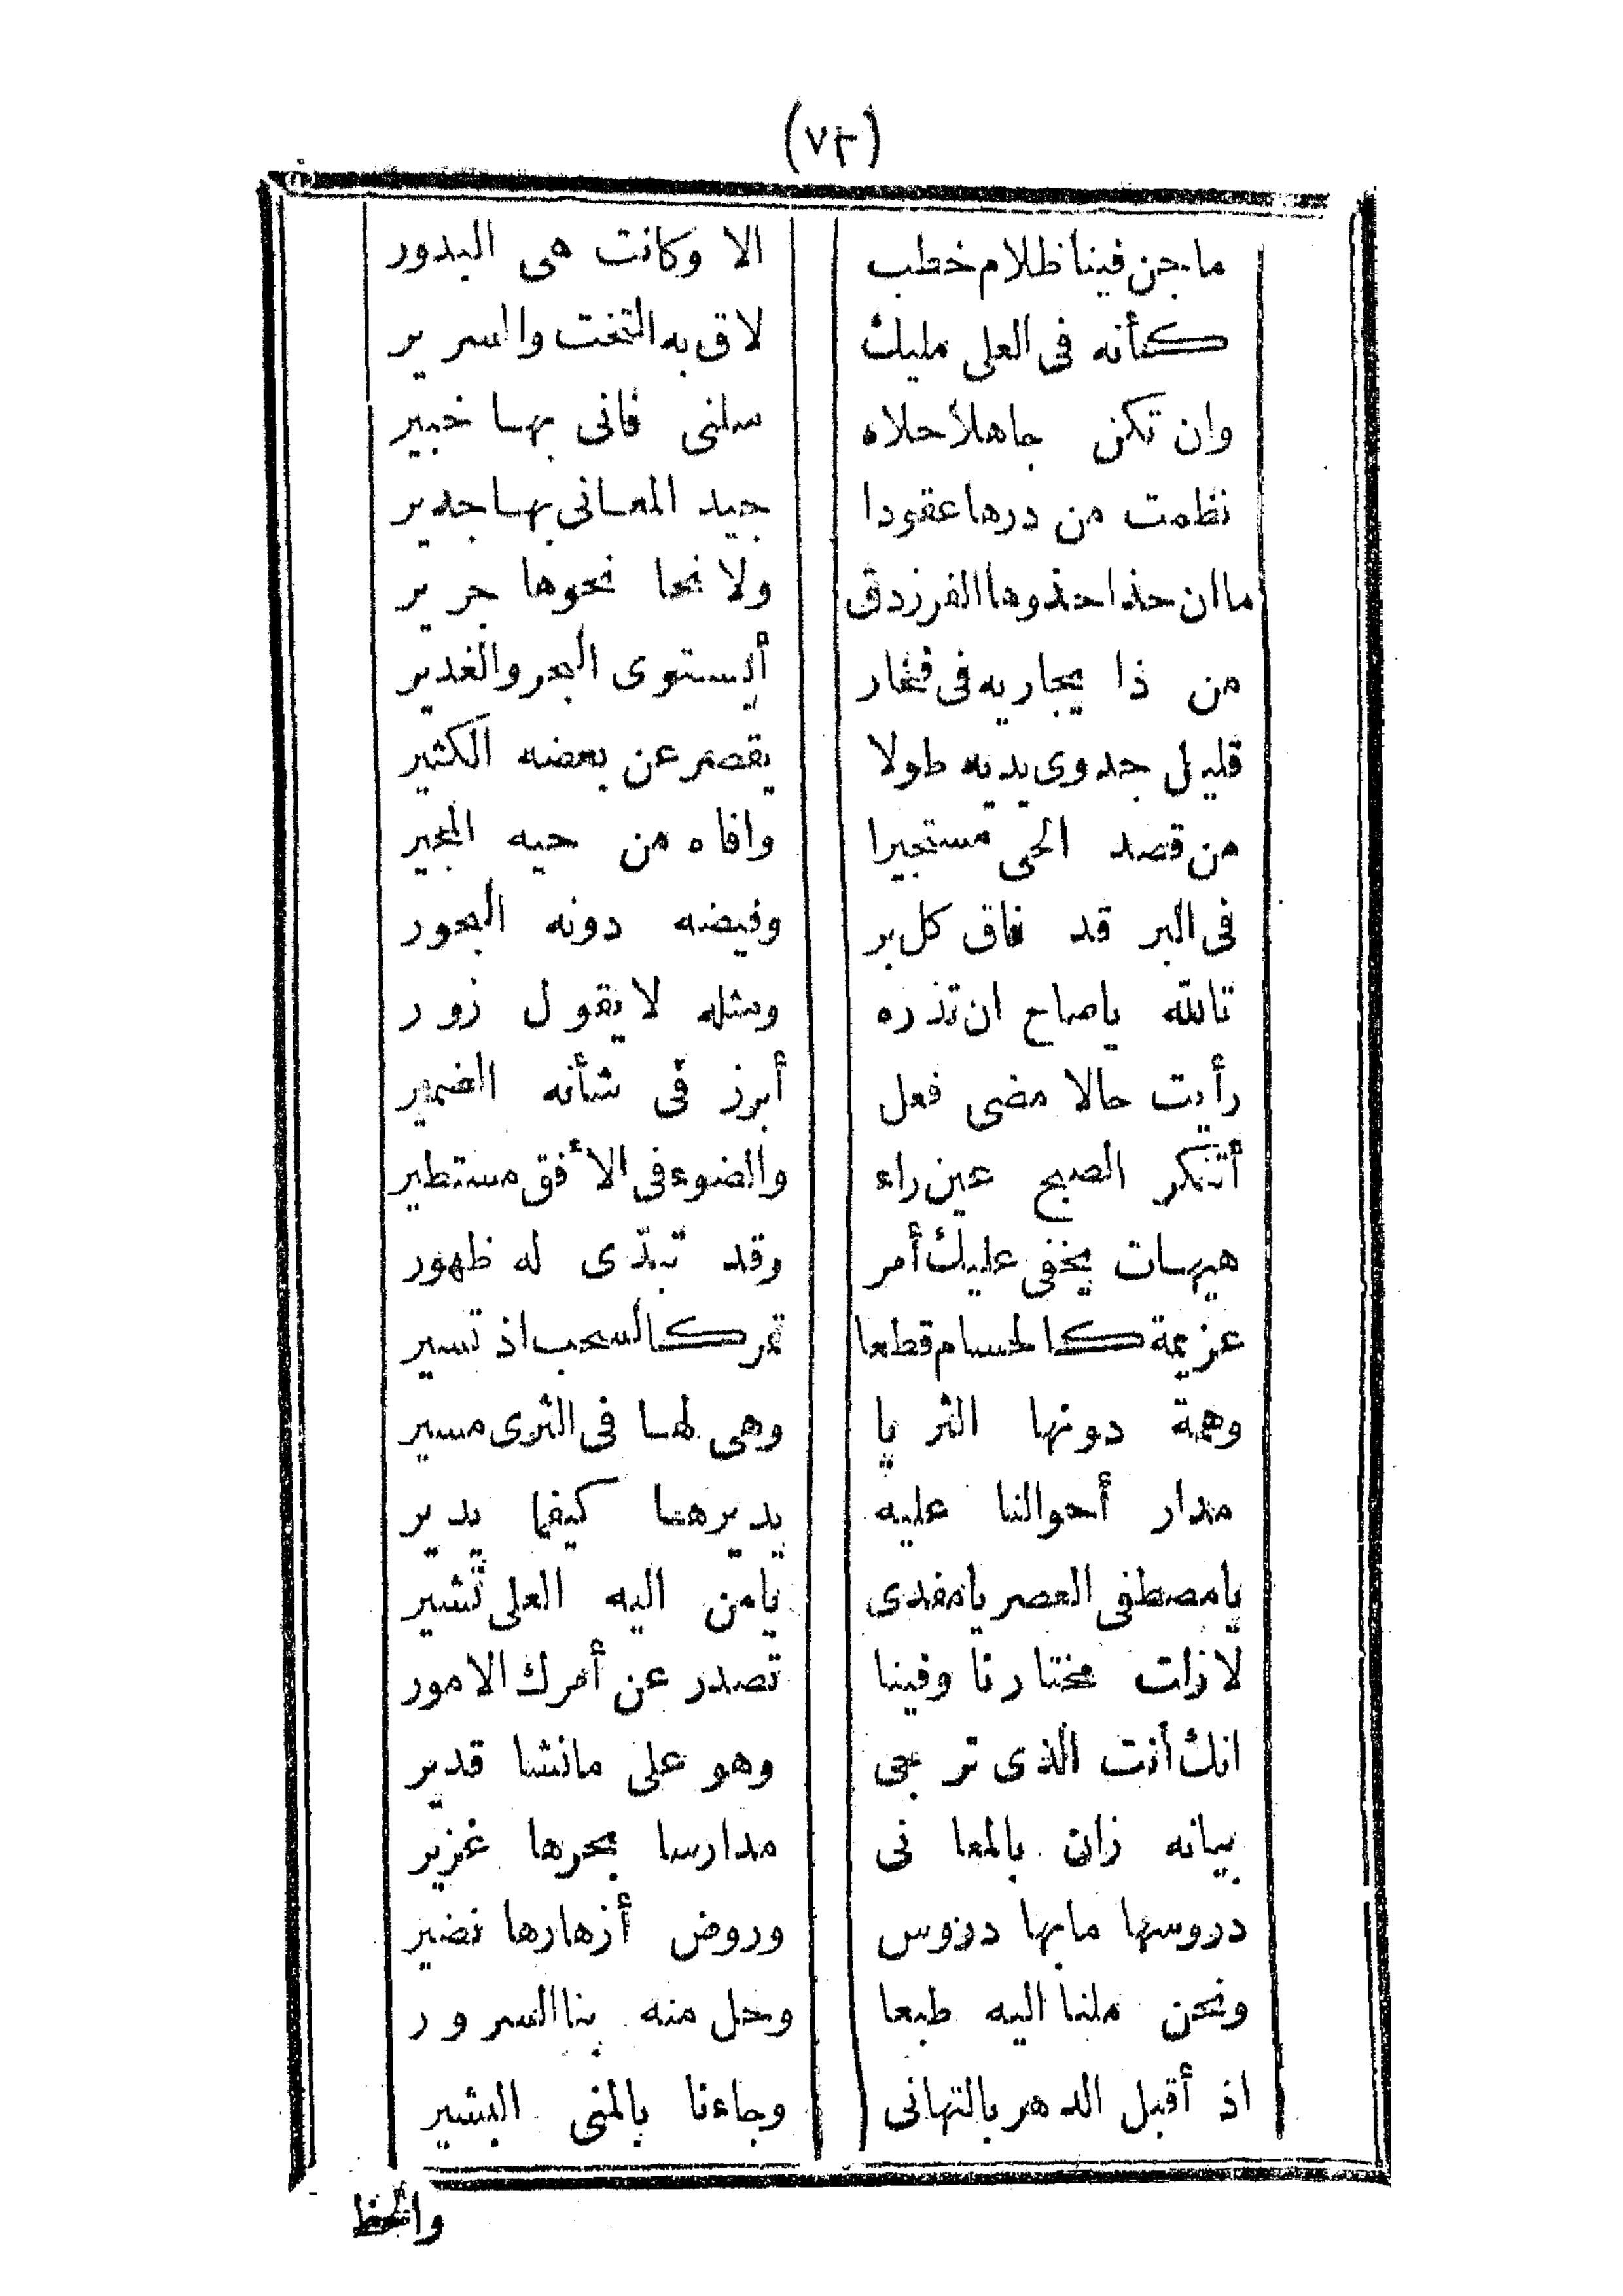 (٧٢)
ما جن فينا ظلام خطب الا وكانت هى البدور
كأنه فى العلى مليك لاق به التخت والسرير
وان تكن جاهلا حلاه سلنى فانى بها خبير
نظمت من درها عقودا جيد المعانى بها جدير
ما ان حذا حذوها الفرزدق ولا نحا نحوها جرير
من ذا يجاريه فى فخار أيستوى البحر والغدير
قليل جدوى يديه طولا يقصر عن بعضه الكثير
من قصد الحى مستجيرا وافاه من حيه المجير
فى البر قد فاق كل بر وفيضه دونه البحور
تالله ياصاح ان تذره ومثله لا يقول زور
رأيت حالا مضى فعل أبرز فى شأنه الضمير
أتنكر الصبح عين راء والضوء فى الأفق مستطير
هيهات يخفى عليك أمر وقد تبدّى له ظهور
عزيمة كالحسام قطعا تمر كالسحب اذ تسير
وهمة دونها الثريا وهى لها فى الثرى مسير
مدار أحوالنا عليه يديرها كيفما يدير
يا مصطفى العصر يا مفدى يامن اليه العلى تشير
لازلت مختارنا وفينا تصدر عن أمرك الامور
انك أنت الذى ترجى وهو على مانشا قدير
بيانه زان بالمعانى مدارسا بحرها غزير
دروسها مابها دروس وروض أزهارها نضير
ونحن ملنا اليه طبعا وحل منه بنا السرور
اذ أقبل الدهر بالتهانى وجاءنا بالمنى البشير
والحظ